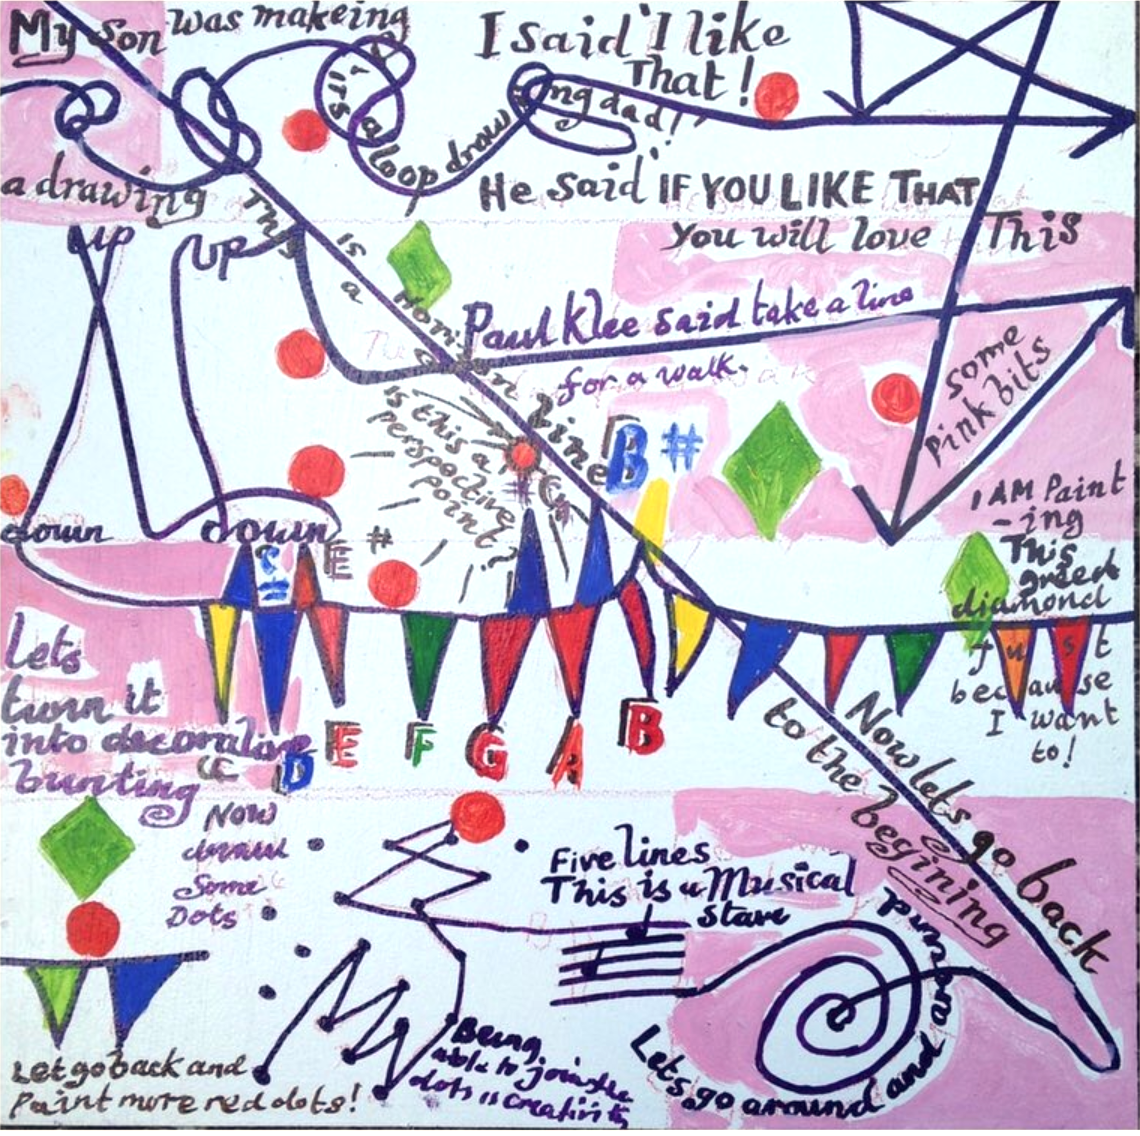 My son was makeing
a drawing
I said 'I like
That!
'its a loop drawing dad!'
He said 'IF YOU LIKE THAT
you will love This
up
up
down
down
This is a
line
Paul Klee said take a line
for a walk.
is this a
perspective
point?
some
Pink bits
B#
E#
I AM Paint
-ing
This
green
diamond
just
because
I want
to!
Lets
turn it
into decorative
bunting
C D E F G A B
Now lets go back
to the begining
Now
draw
Some
Dots
Five lines
This is a Musical
stave
Being
able to join the
dots is creativity
Lets go around and around
Let go back and
Paint more red dots!